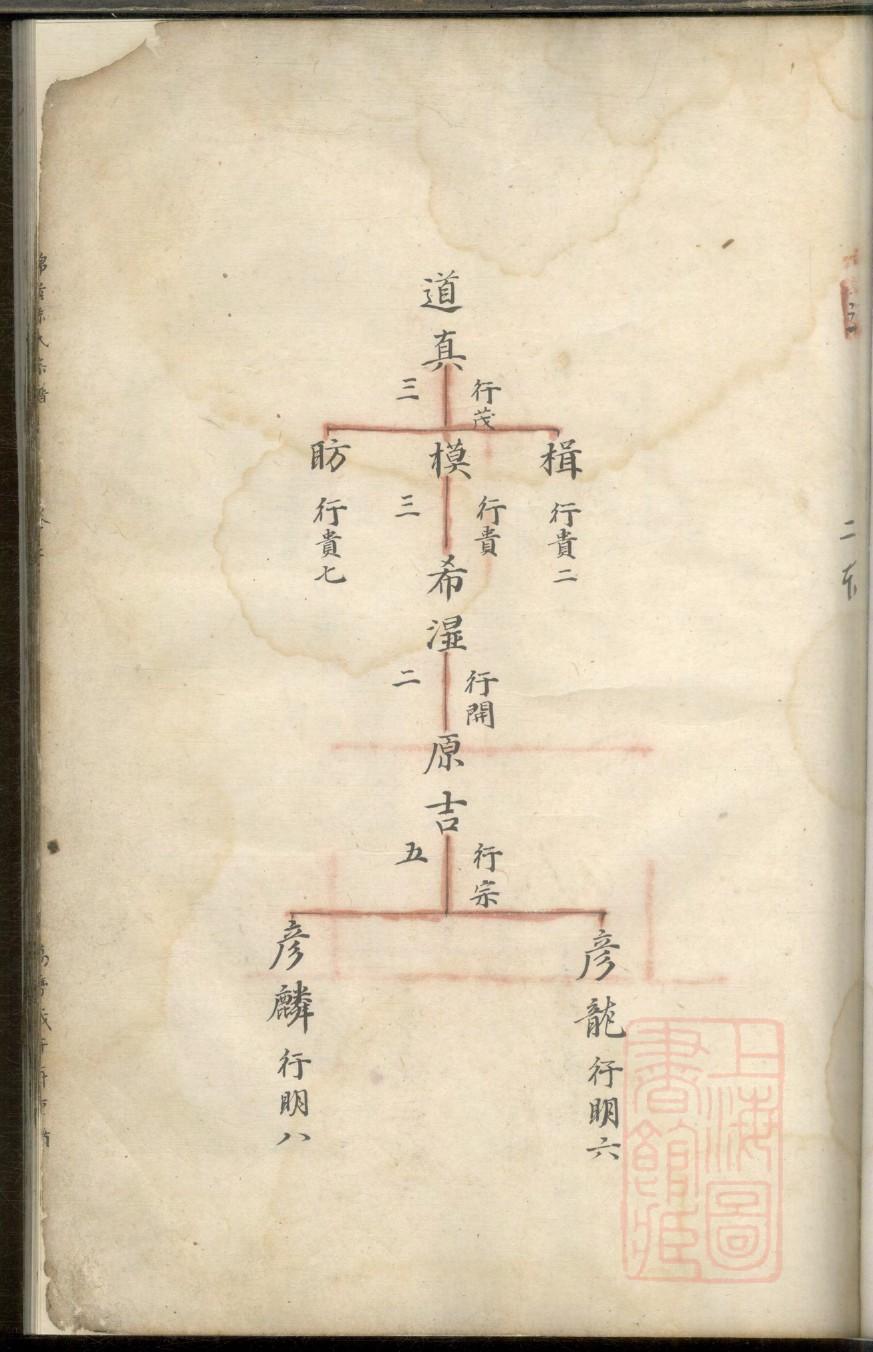 道真
行茂
三
楫
行貴二
模
行貴
三
昉
行貴七
希濕
行開
二
原吉
行宗
五
彦龍
行明六
彦麟
行明八
上海圖
書館藏